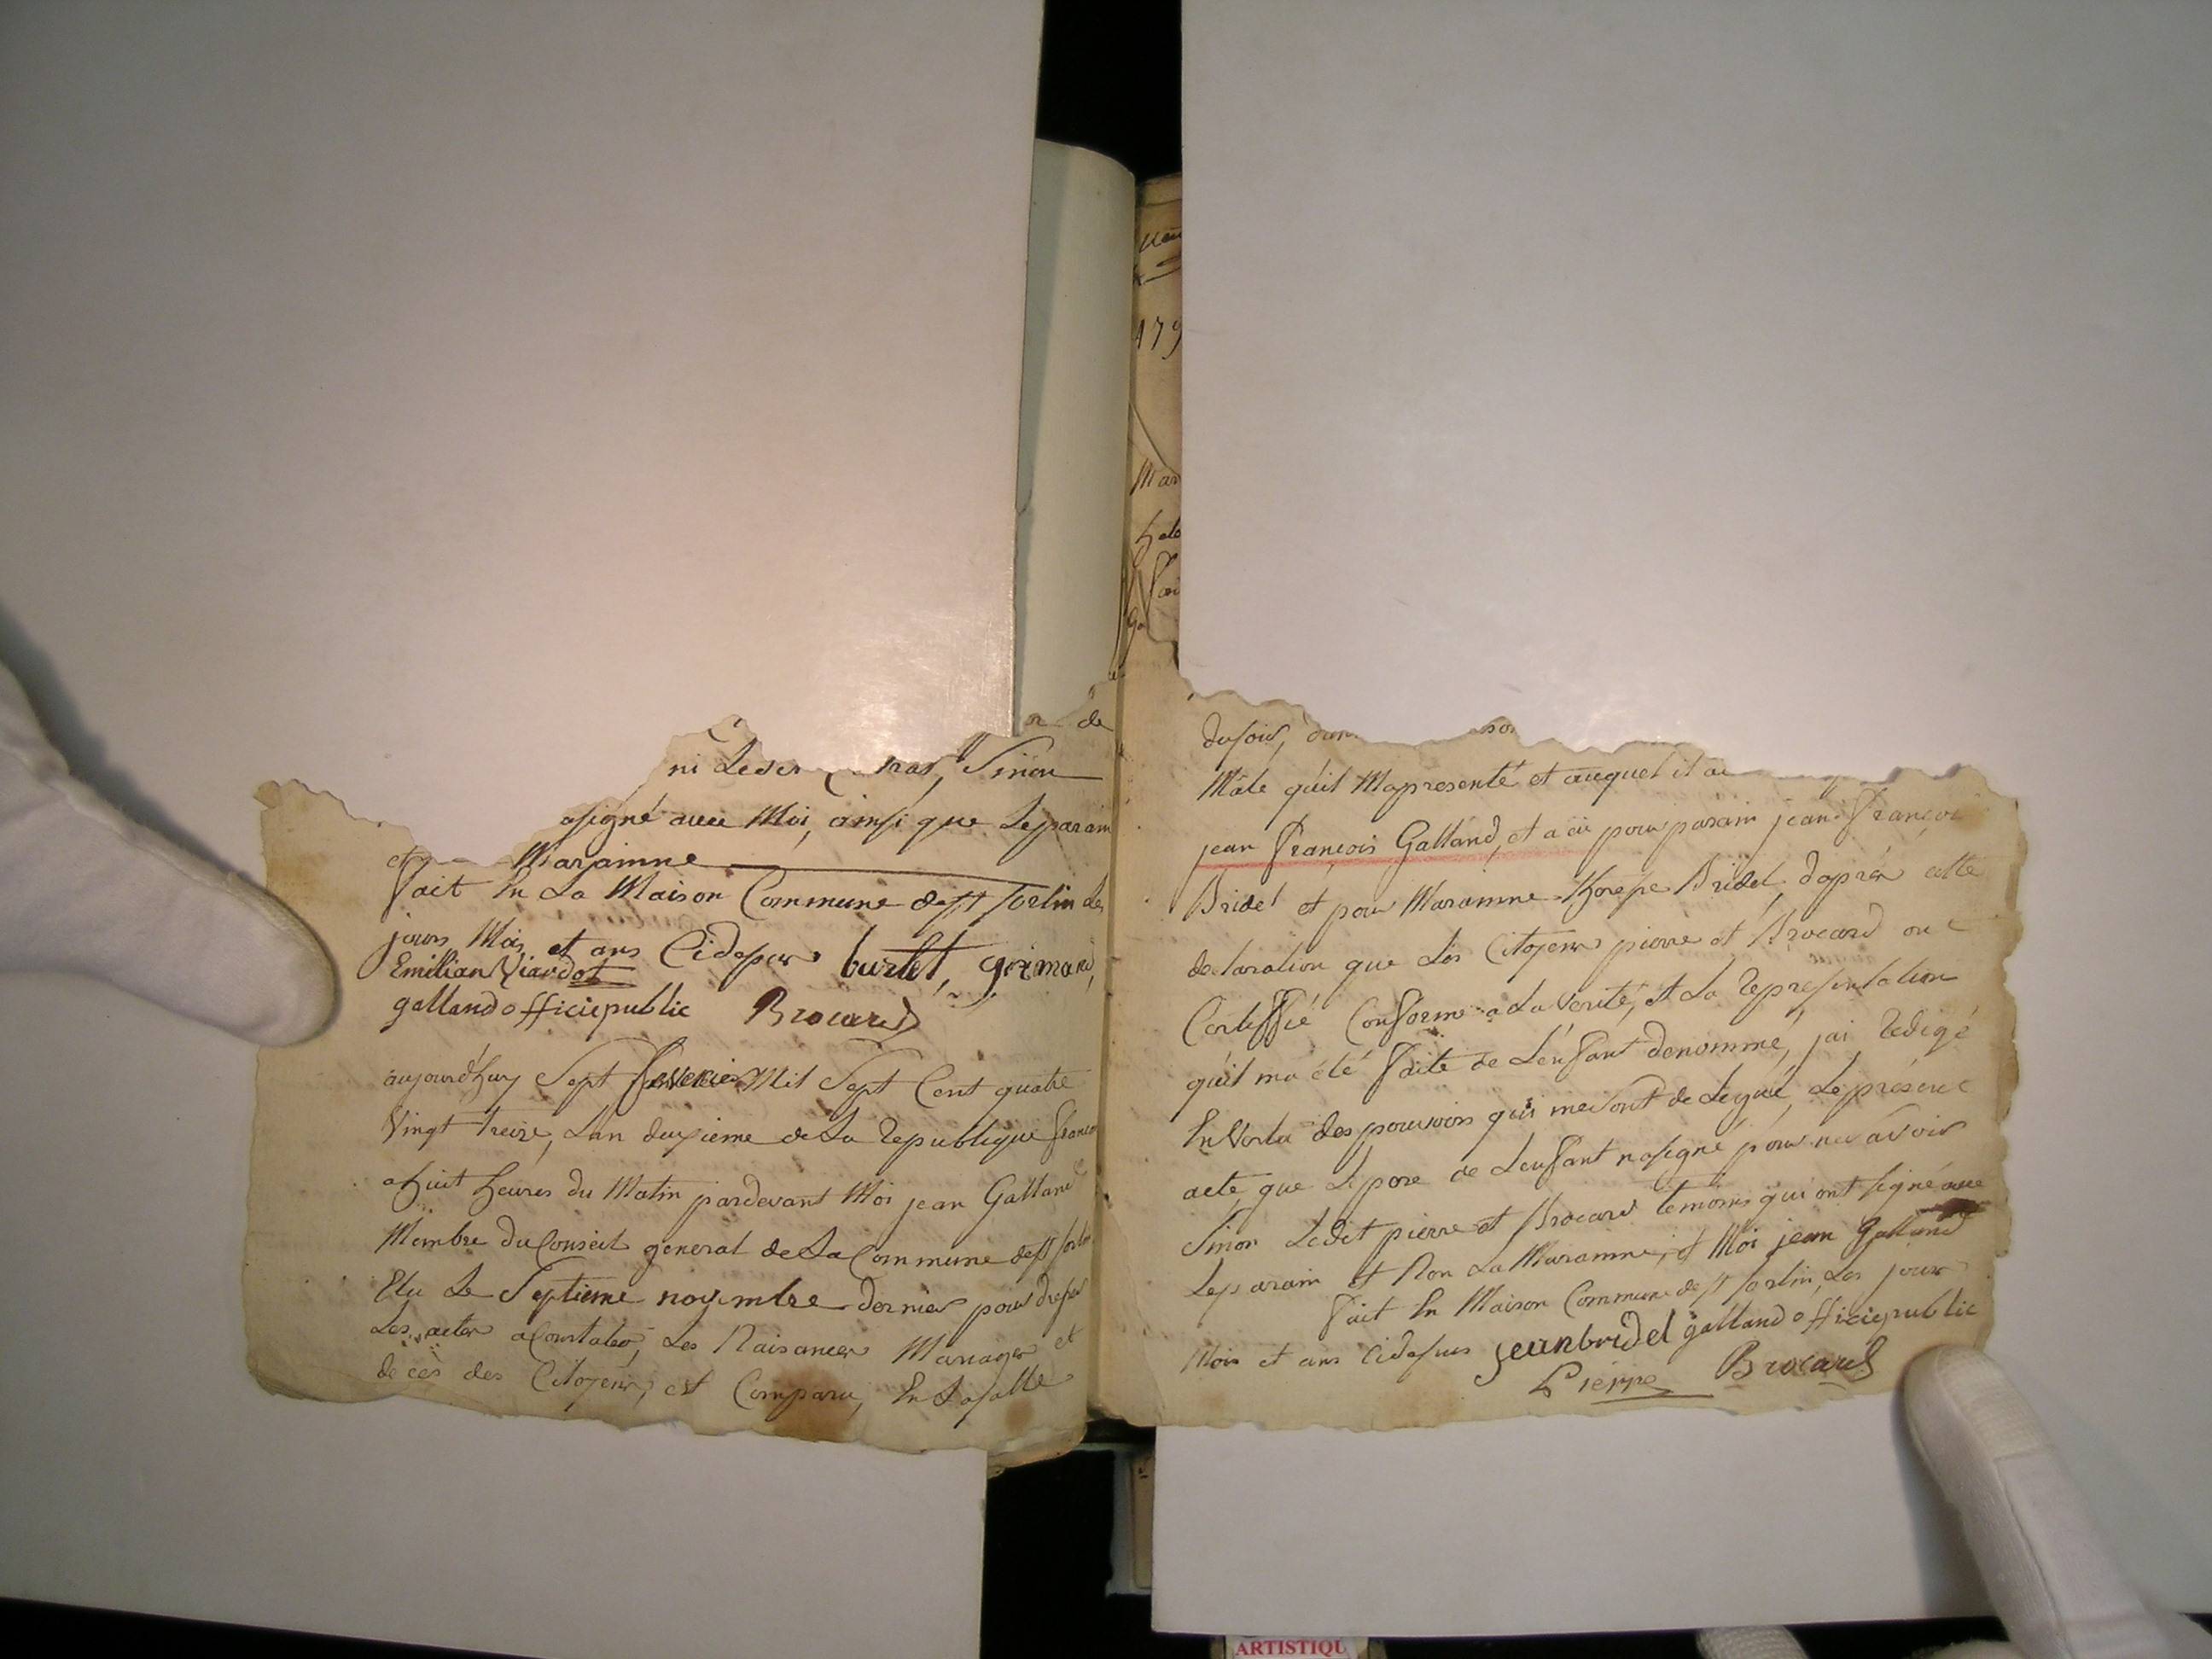 de
ni Sinon
asigné avec Moi, ainsi que Leparain
et Maramne
fait En La Maison Commune de St Sorlin Les
jours Mois et ans Cidesus burlet, girmand,
Emillian Viardot
galland officiepublic Brocard
aujourd'huy Sept fevrier Mil Sept Cent quatre
Vingt treize, Lan deuxieme de La Republique
a huit heures du Matin pardevant Moi jean Galland
Membre du Conseil general de La Commune de St Sorlin
Elu Le Septieme novembre dernier pour dresser
Les actes a Constater, Les Naisances Mariages et
deces des Citoyens, est Comparu, En La Salle
179
Mar
dusoir,
Mâle qu'il Mapresenté et auquel il a
jean François Galland, et a eü pour parain jean François
Bridel et pour Maramne Bridel, d'aprés cette
declaration que Les Citoyens pierre et Brocard ont
Certiffié Conforme a La Verité, et La representation
qu'il ma été faite de L'enfant denommé, jai Redigé
En Vertu des pouvoirs qui me sont delegué, Le présent
acte que Le pere de Lenfant na signé pour ne savoir
Sinon Ledit pierre et Brocard temoins qui ont signé avec
Leparain et Non La Maramne, et Moi jean Galland
fait En Maison Commune de St Sorlin, Les jour
Mois et ans Cidesus jeanbridel galland officiepublic
Pierre Brocard
ARTISTIQU